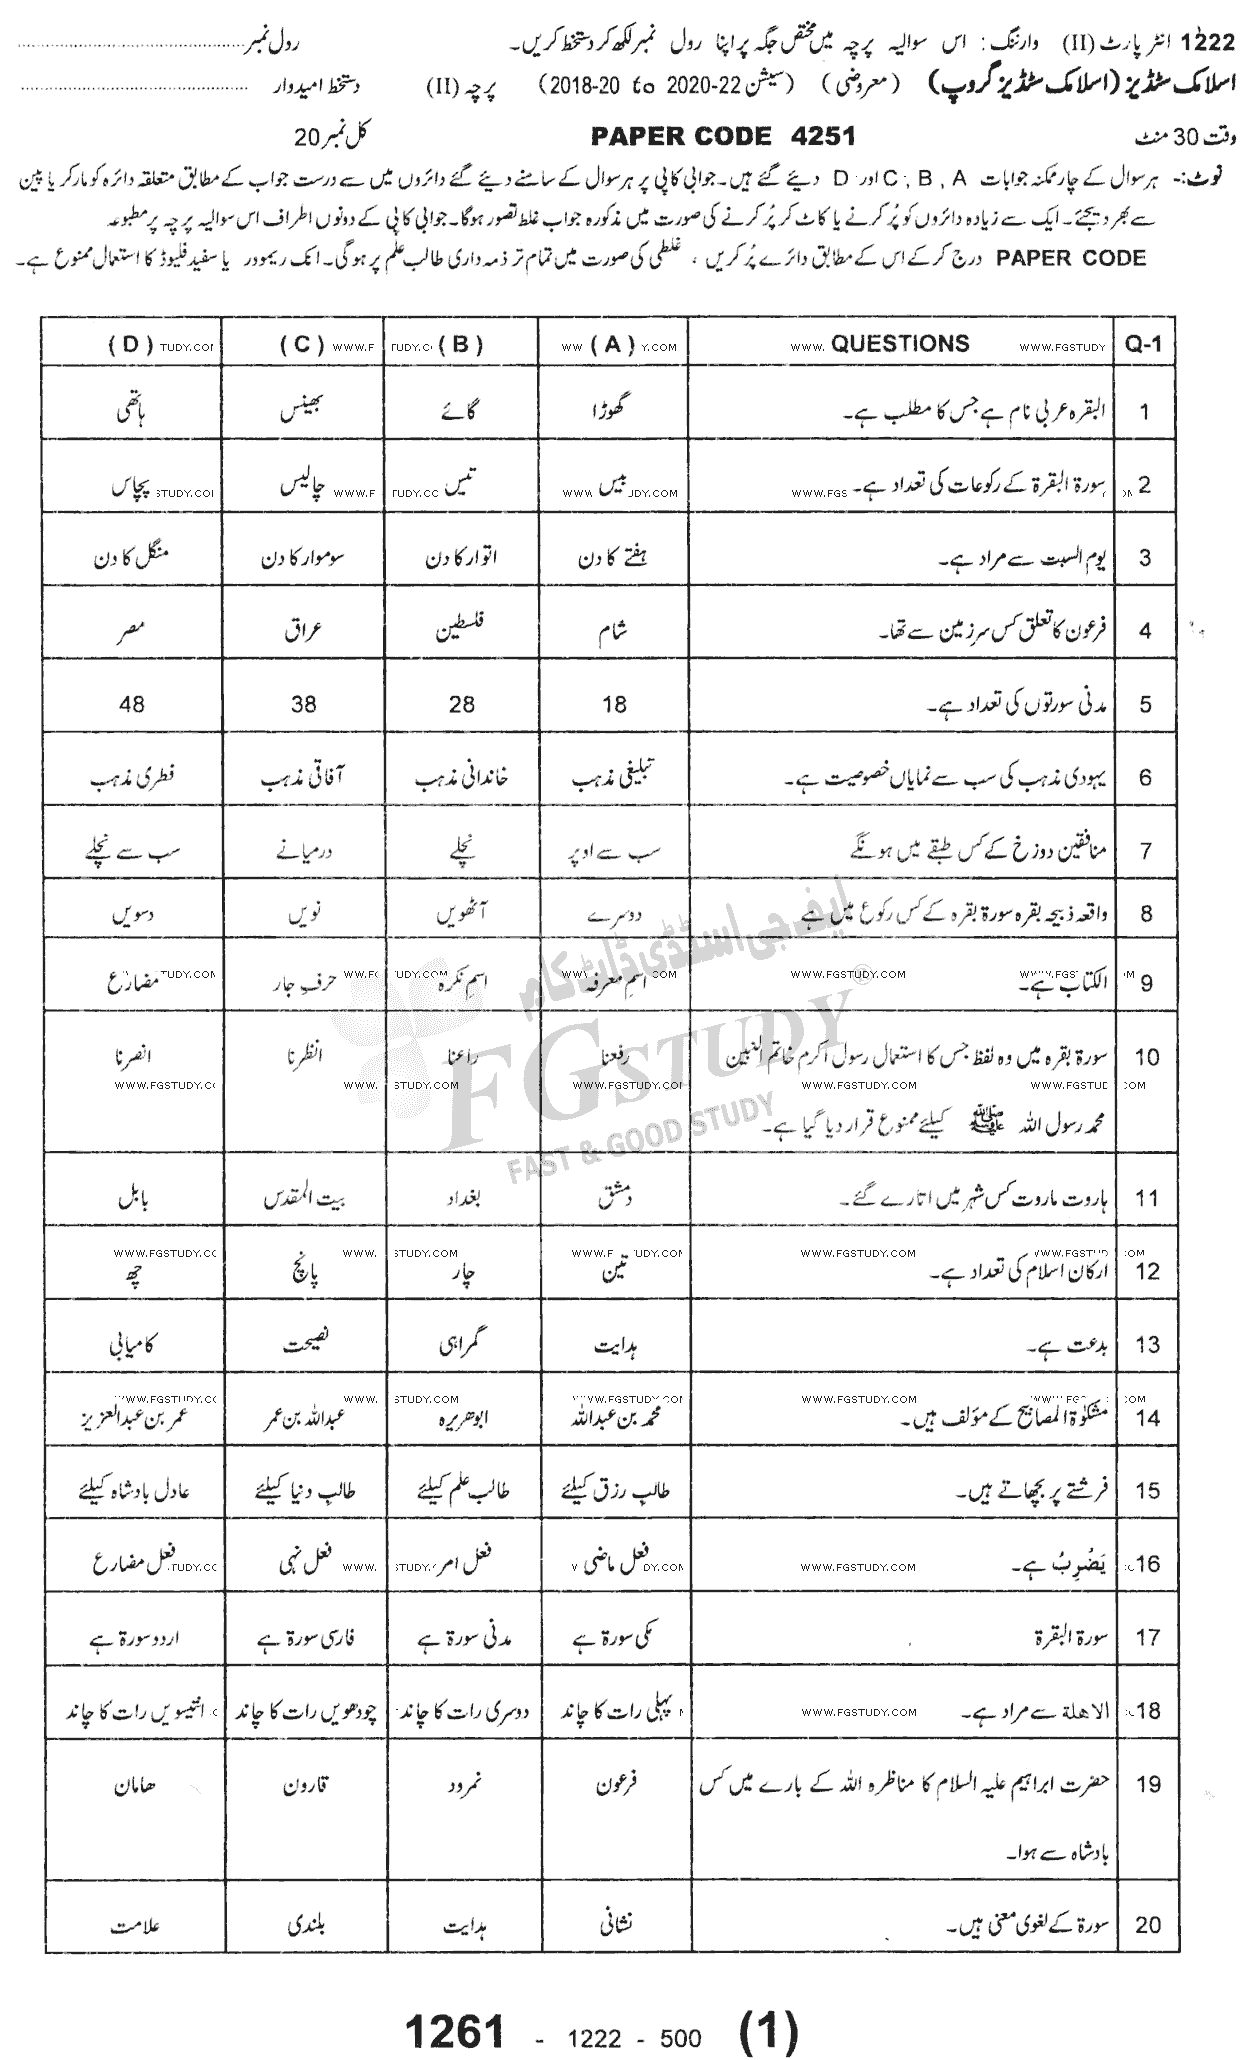 1222 انٹر پارٹ (II) وارننگ: اس سوالیہ پرچہ میں مختص جگہ پر اپنا رول نمبر لکھ کر دستخط کریں۔ رول نمبر
اسلامک سٹڈیز (اسلامک سٹڈیز گروپ) (معروضی) (سیشن 22-2020 to 20-2018) پرچہ (II) دستخط امیدوار
وقت 30 منٹ PAPER CODE 4251 کل نمبر 20
نوٹ:- ہر سوال کے چار ممکنہ جوابات A , B , C اور D دیئے گئے ہیں۔ جوابی کاپی پر ہر سوال کے سامنے دیئے گئے دائروں میں سے درست جواب کے مطابق متعلقہ دائرہ کو مارکر یا پین
سے بھر دیجئے۔ ایک سے زیادہ دائروں کو پُر کرنے یا کاٹ کر پُر کرنے کی صورت میں مذکورہ جواب غلط تصور ہوگا۔ جوابی کاپی کے دونوں اطراف اس سوالیہ پرچہ پر مطبوعہ
PAPER CODE درج کر کے اس کے مطابق دائرے پُر کریں ، غلطی کی صورت میں تمام تر ذمہ داری طالب علم پر ہوگی۔ انک ریمودر یا سفید فلیوڈ کا استعمال ممنوع ہے۔
Q-1 QUESTIONS (A) (B) (C) (D)
1 البقرہ عربی نام ہے جس کا مطلب ہے۔ گھوڑا گائے بھینس ہاتھی
2 سورۃ البقرۃ کے رکوعات کی تعداد ہے۔ بیس تیس چالیس پچاس
3 یوم السبت سے مراد ہے۔ ہفتے کا دن اتوار کا دن سوموار کا دن منگل کا دن
4 فرعون کا تعلق کس سرزمین سے تھا۔ شام فلسطین عراق مصر
5 مدنی سورتوں کی تعداد ہے۔ 18 28 38 48
6 یہودی مذہب کی سب سے نمایاں خصوصیت ہے۔ تبلیغی مذہب خاندانی مذہب آفاقی مذہب فطری مذہب
7 منافقین دوزخ کے کس طبقے میں ہونگے سب سے اوپر نچلے درمیانے سب سے نچلے
8 واقعہ ذبیحہ بقرہ سورۃ بقرہ کے کس رکوع میں ہے دوسرے آٹھویں نویں دسویں
9 الکتاب ہے۔ اسمِ معرفہ اسمِ نکرہ حرفِ جار مضارع
10 سورۃ بقرہ میں وہ لفظ جس کا استعمال رسول اکرم خاتم النبین رفعنا راعنا انظرنا انصرنا
محمد رسول اللہ ﷺ کیلئے ممنوع قرار دیا گیا ہے۔
11 ہاروت ماروت کس شہر میں اتارے گئے۔ دمشق بغداد بیت المقدس بابل
12 ارکان اسلام کی تعداد ہے۔ تین چار پانچ چھ
13 بدعت ہے۔ ہدایت گمراہی نصیحت کامیابی
14 مشکوٰۃ المصابیح کے مؤلف ہیں۔ محمد بن عبداللہ ابوھریرہ عبداللہ بن عمر عمر بن عبدالعزیز
15 فرشتے پر بچھاتے ہیں۔ طالبِ رزق کیلئے طالب علم کیلئے طالبِ دنیا کیلئے عادل بادشاہ کیلئے
16 یَضْرِبُ ہے۔ فعل ماضی فعل امر فعل نہی فعل مضارع
17 سورۃ البقرۃ مکی سورۃ ہے مدنی سورۃ ہے فارسی سورۃ ہے اردو سورۃ ہے
18 الاھلۃ سے مراد ہے۔ پہلی رات کا چاند دوسری رات کا چاند چودھویں رات کا چاند انتیسویں رات کا چاند
19 حضرت ابراہیم علیہ السلام کا مناظرہ اللہ کے بارے میں کس فرعون نمرود قارون ھامان
بادشاہ سے ہوا۔
20 سورۃ کے لغوی معنی ہیں۔ نشانی ہدایت بلندی علامت
ایف جی اسٹڈی ڈاٹ کام
FGSTUDY®
FAST & GOOD STUDY
WWW.FGSTUDY.COM
1261 - 1222 - 500 (1)